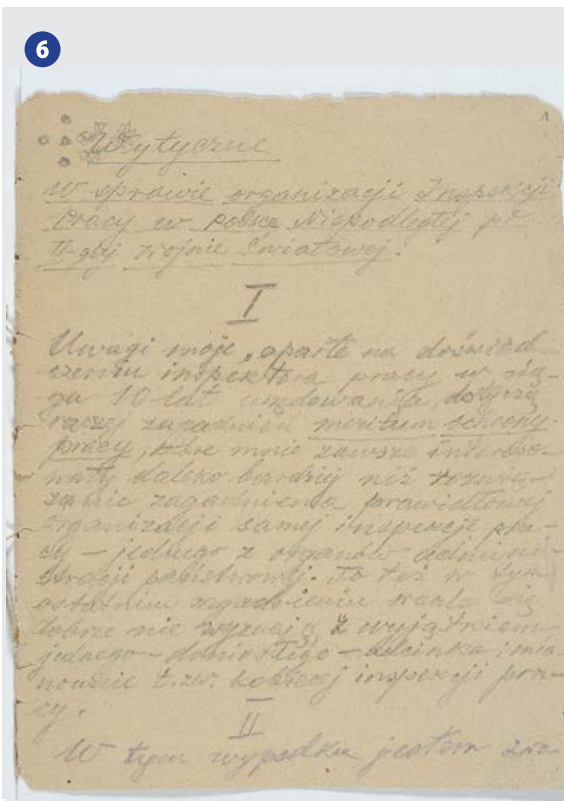 6
1
Wytyczne
w sprawie organizacji Inspekcji
Pracy w Polsce Niepodległej po
II-giej wojnie światowej.
I
Uwagi moje, oparte na doświad-
czeniu inspektora pracy w cią-
gu 10 lat urzędowania, dotyczą
raczej zagadnień meritum ochrony
pracy, które mnie zawsze intereso-
wały daleko bardziej niż rozwią-
zanie zagadnienia prawidłowej
organizacji samej inspekcji pra-
cy – jednego z organów admini-
stracji państwowej. To też w tym
ostatnim zagadnieniu
dobrze nie wyznaję, z wyjątkiem
jednego – doniosłego – odcinka, mia-
nowicie t.zw. kobiecej inspekcji pra-
cy.
II
W tym wypadku jestem